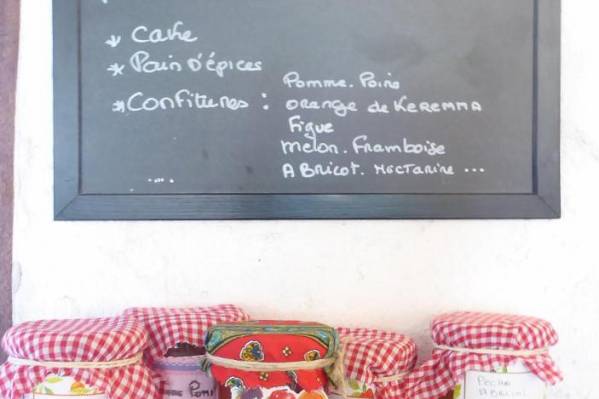 * Cake
* Pain D'épices
* Confitures : Pomme. Poire
orange de KEREMMA
Figue
Melon. Framboise
ABRicot. Nectarine ...
....
POMM
PECHE
ABRICOT